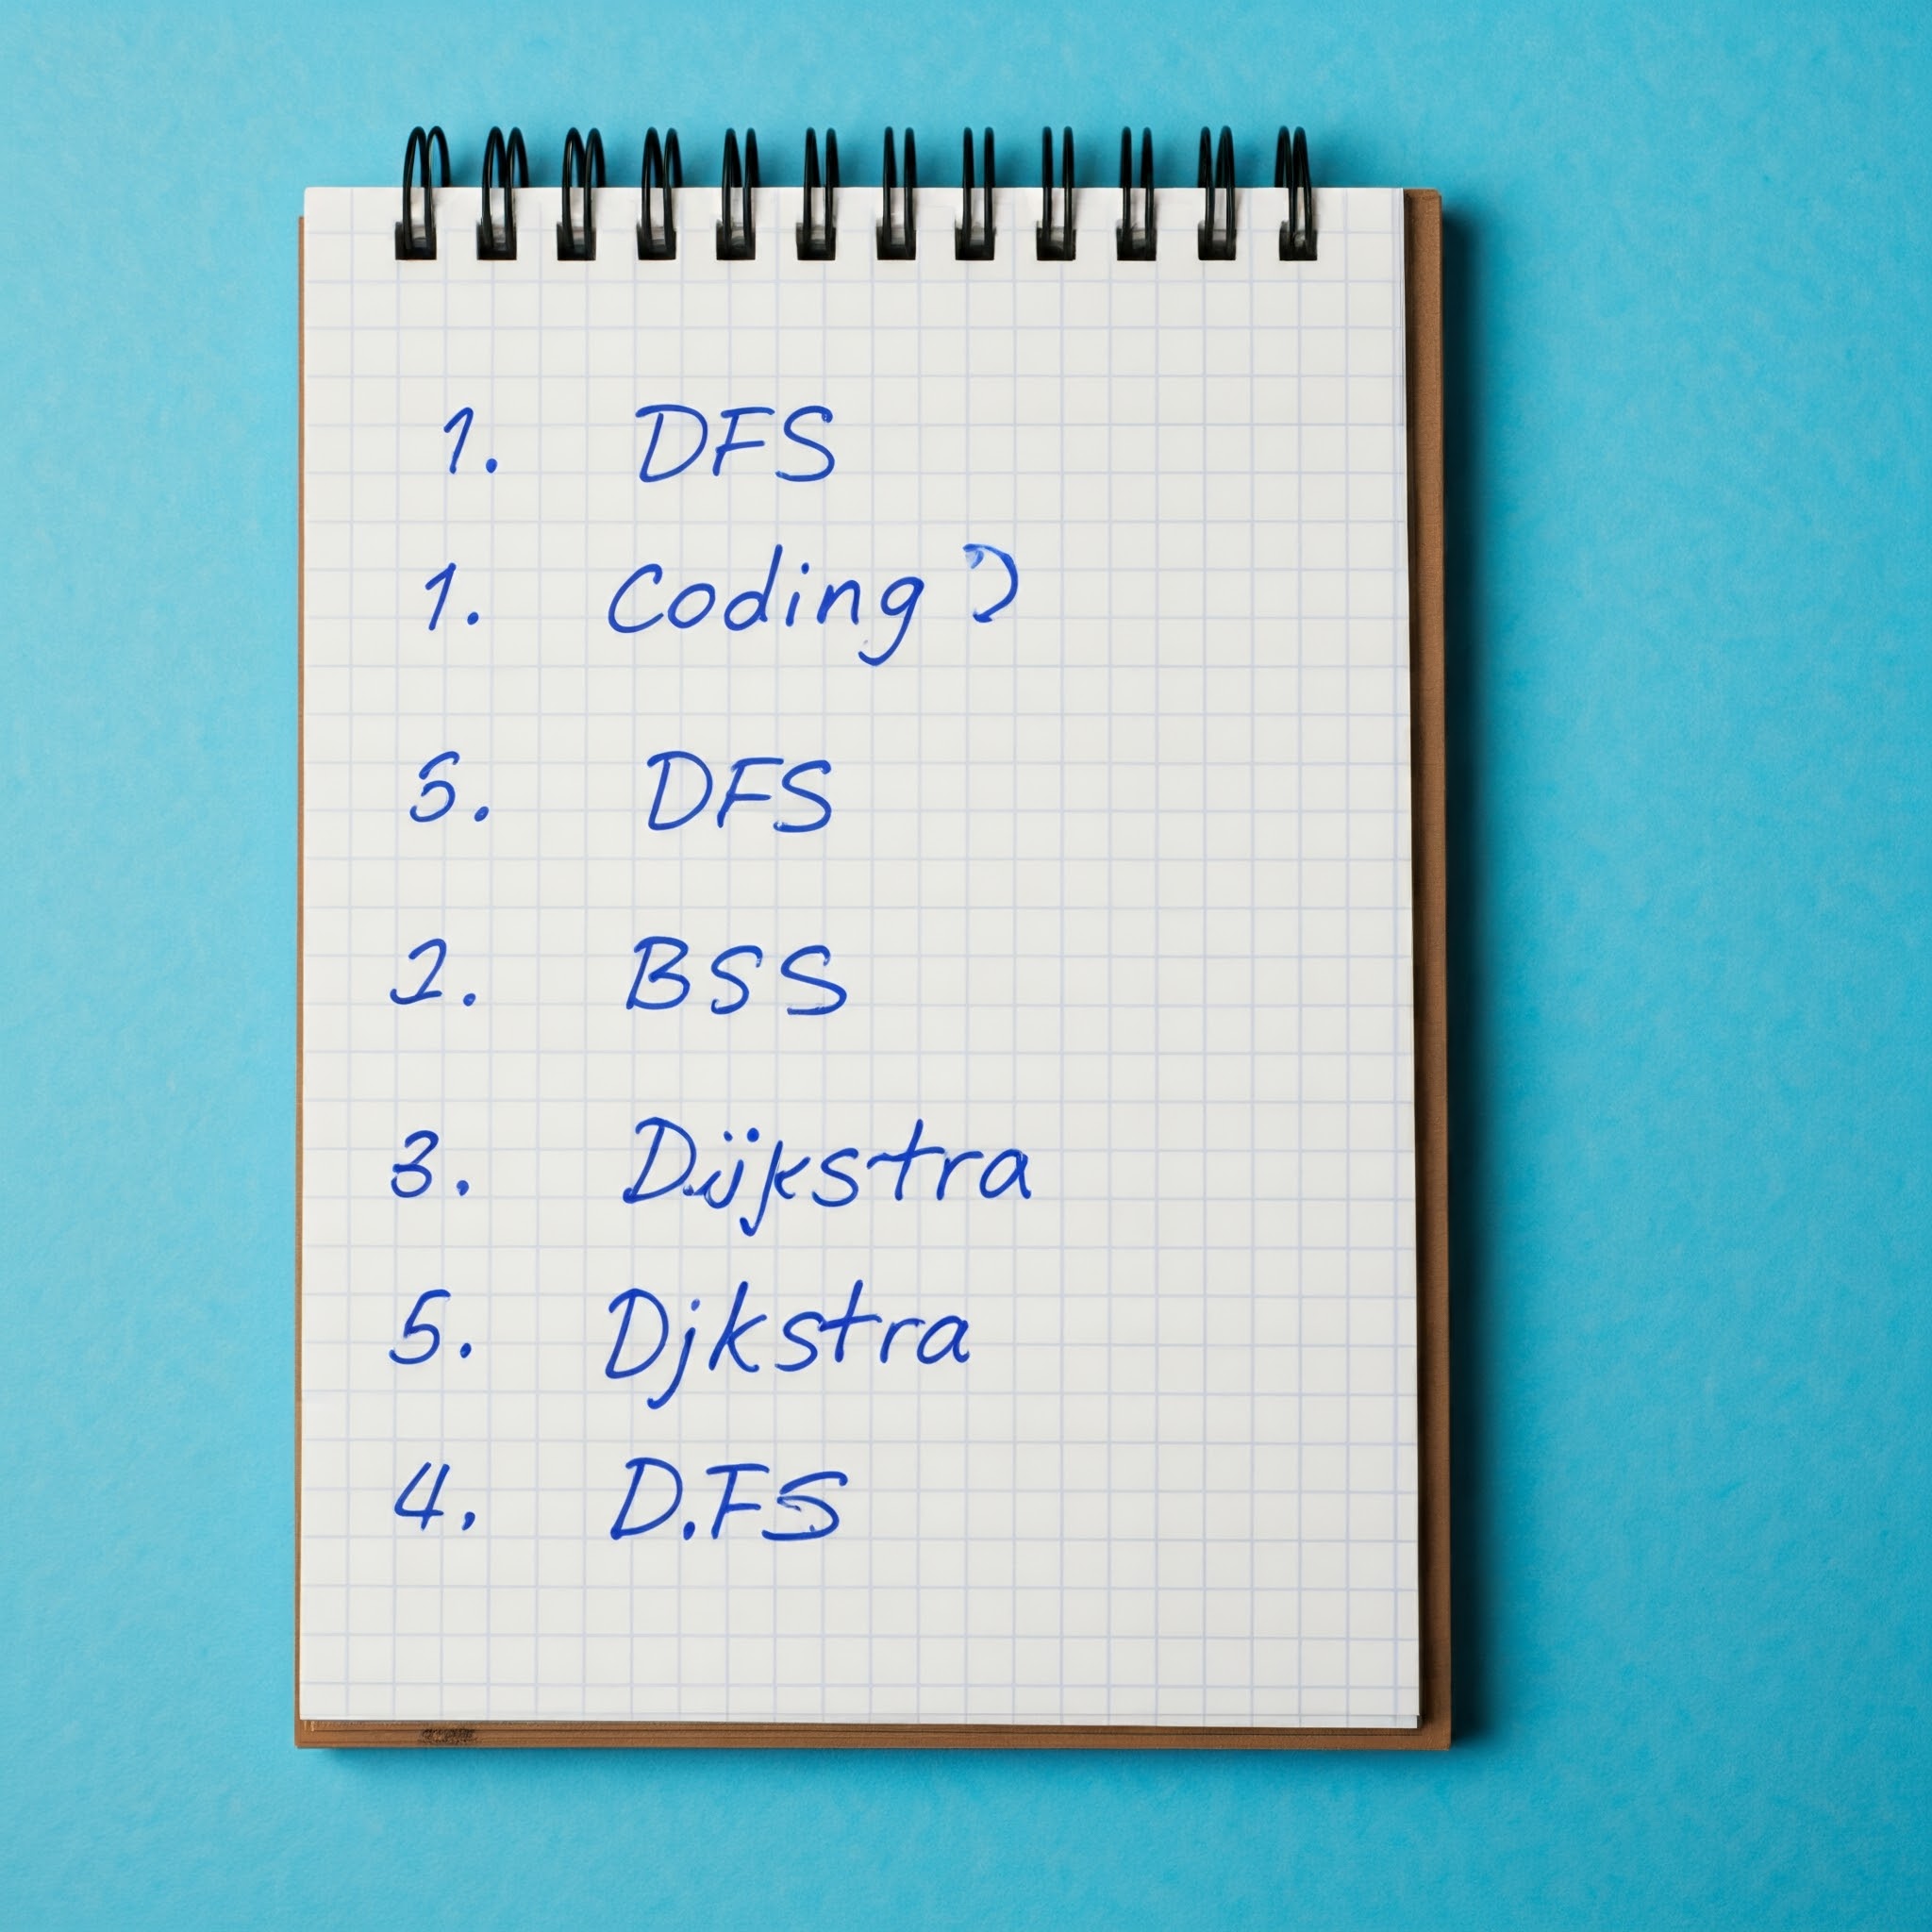 1. DFS
1. Coding
5. DFS
2. BSS
3. Dijkstra
5. Djkstra
4. D.FS